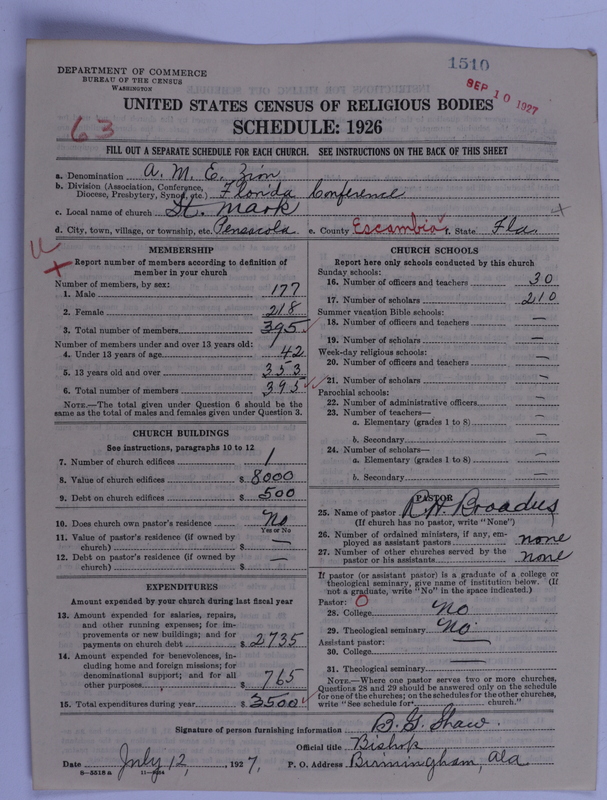 1510
SEP 10 1927
DEPARTMENT OF COMMERCE
BUREAU OF THE CENSUS
WASHINGTON
UNITED STATES CENSUS OF RELIGIOUS BODIES
63
SCHEDULE: 1926
FILL OUT A SEPARATE SCHEDULE FOR EACH CHURCH. SEE INSTRUCTIONS ON THE BACK OF THIS SHEET
a. Denomination A. M. E. Zion
b. Division (Association, Conference, Diocese, Presbytery, Synod, etc.) Florida Conference
c. Local name of church St. Mark
d. City, town, village, or township, etc. Pensacola e. County Escambia f. State Fla.
MEMBERSHIP
Report number of members according to definition of
member in your church
Number of members, by sex:
1. Male 177
2. Female 218
3. Total number of members 395
Number of members under and over 13 years old:
4. Under 13 years of age 42
5. 13 years old and over 353
6. Total number of members 395
NOTE.—The total given under Question 6 should be the
same as the total of males and females given under Question 3.
CHURCH BUILDINGS
See instructions, paragraphs 10 to 12
7. Number of church edifices 1
8. Value of church edifices $ 8000
9. Debt on church edifices $ 500
10. Does church own pastor's residence No
Yes or No
11. Value of pastor's residence (if owned by
church) $ —
12. Debt on pastor's residence (if owned by
church) $ —
EXPENDITURES
Amount expended by your church during last fiscal year
13. Amount expended for salaries, repairs,
and other running expenses; for im-
provements or new buildings; and for
payments on church debt $ 2735
14. Amount expended for benevolences, in-
cluding home and foreign missions; for
denominational support; and for all
other purposes $ 765
15. Total expenditures during year $ 3500
CHURCH SCHOOLS
Report here only schools conducted by this church
Sunday schools:
16. Number of officers and teachers 30
17. Number of scholars 210
Summer vacation Bible schools:
18. Number of officers and teachers —
19. Number of scholars —
Week-day religious schools:
20. Number of officers and teachers —
21. Number of scholars —
Parochial schools:
22. Number of administrative officers —
23. Number of teachers—
a. Elementary (grades 1 to 8) —
b. Secondary —
24. Number of scholars—
a. Elementary (grades 1 to 8) —
b. Secondary —
PASTOR
25. Name of pastor R. H. Broadus
(If church has no pastor, write "None")
26. Number of ordained ministers, if any, em-
ployed as assistant pastors none
27. Number of other churches served by the
pastor or his assistants none
If pastor (or assistant pastor) is a graduate of a college or
theological seminary, give name of institution below. (If
not a graduate, write "No" in the space indicated.)
Pastor: 0
28. College No
29. Theological seminary No
Assistant pastor:
30. College —
31. Theological seminary
NOTE.—Where one pastor serves two or more churches,
Questions 28 and 29 should be answered only on the schedule
for one of the churches; on the schedules for the other churches,
write "See schedule for church."
Signature of person furnishing information B. G. Shaw.
Official title Bishop
Date July 12, 1927. P. O. Address Birmingham, Ala
8—5518 a